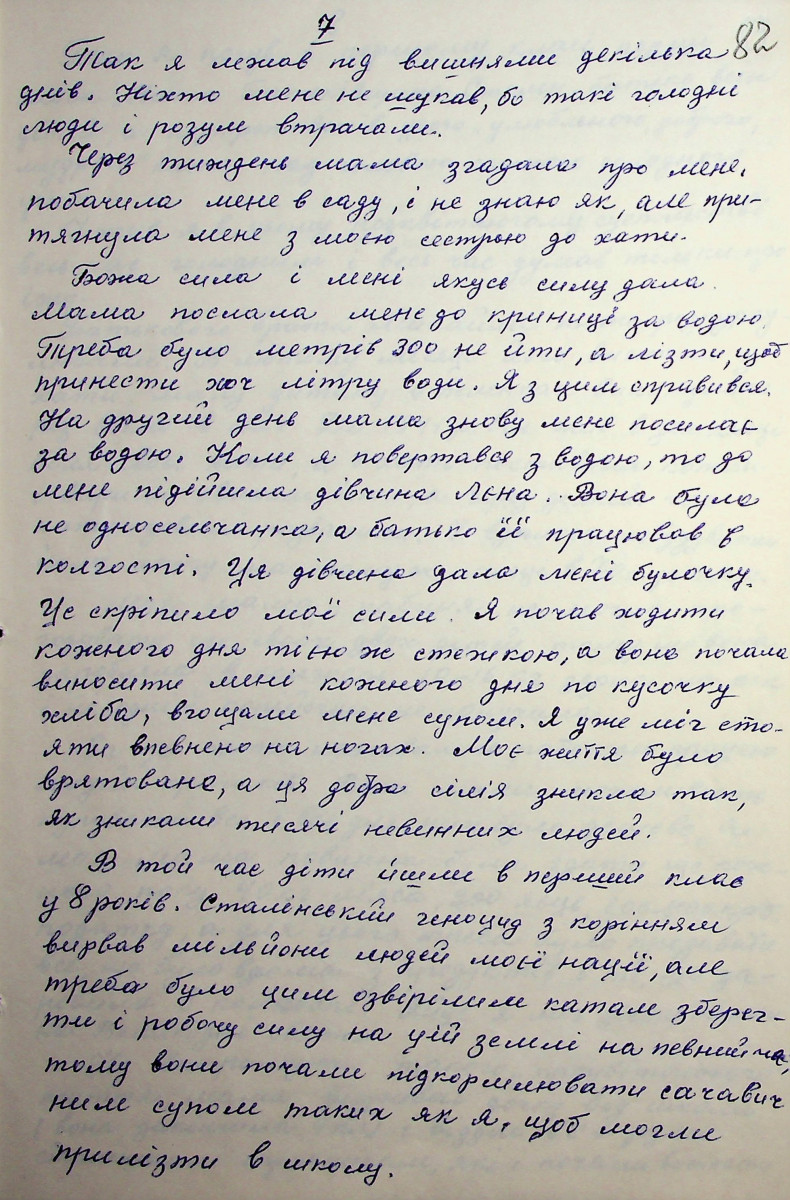 7
82
Так я лежав під вишнями декілька
днів. Ніхто мене не шукав, бо такі голодні
люди і розум втрачали.
Через тиждень мама згадала про мене,
побачила мене в саду, і не знаю як, але при-
тягнула мене з моєю сестрою до хати.
Божа сила і мені якусь силу дала.
Мама послала мене до криниці за водою.
Треба було метрів 300 не йти, а лізти, щоб
принести хоч літру води. Я з цим справився.
На другий день мама знову мене посилає
за водою. Коли я повертався з водою, то до
мене підійшла дівчина Лєна. Вона була
не односельчанка, а батько її працював в
колгості. Ця дівчина дала мені булочку.
Це скріпило мої сили. Я почав ходити
кожного дня тією ж стежкою, а вона почала
виносити мені кожного дня по кусочку
хліба, вгощали мене супом. Я уже міг сто-
яти впевнено на ногах. Моє життя було
врятовано, а ця добра сімія зникла так,
як зникали тисячі невинних людей.
В той час діти йшли в перший клас
у 8 років. Сталінський геноцид з корінням
вирвав мільйони людей моєї нації, але
треба було цим озвірілим катам зберег-
ти і робочу силу на цій землі на певний час,
тому вони почали підкормлювати сачавич
ним супом таких як я, щоб могли
прилізти в школу.